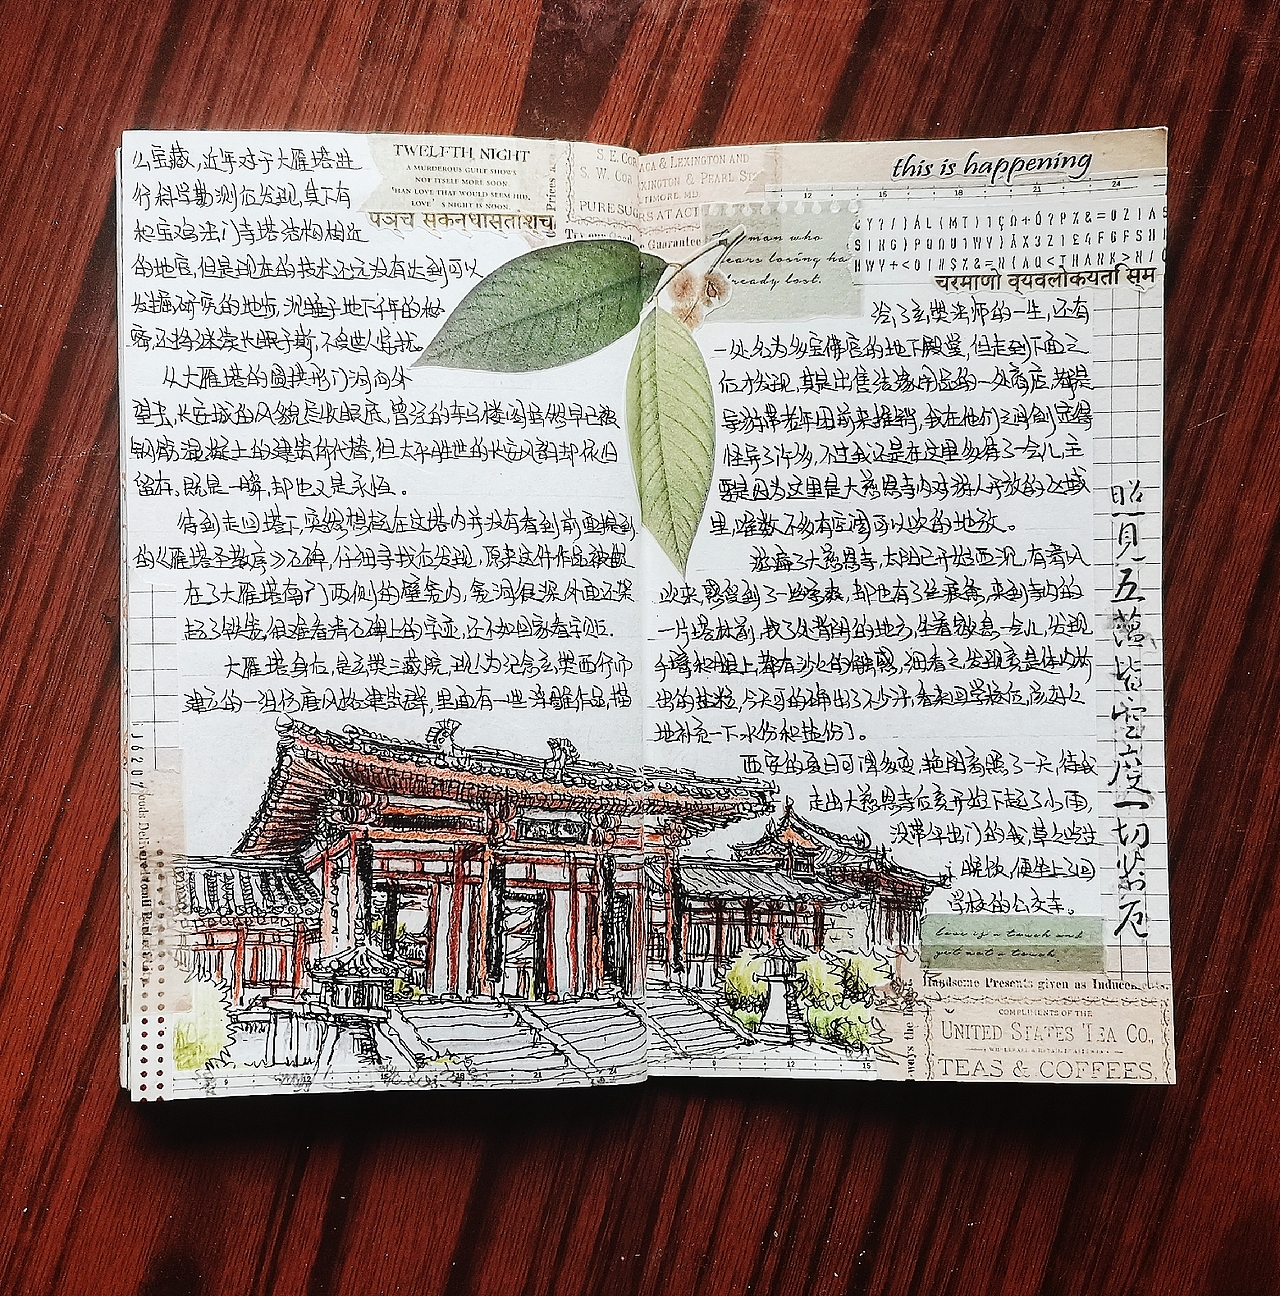 么宝藏,近年对于大雁塔进
行科学勘测后发现,其下有
和宝鸡法门寺塔结构相近
的地宫,但是现在的技术还远没有达到可以
发掘研究的地步,沉睡于地下千年的秘
密,还将继续长眠于斯,不受世人惊扰。
从大雁塔的圆拱形门洞向外
望去,长安城的风貌尽收眼底,曾经的车马楼阁虽然早已被
钢筋混凝土的建筑所代替,但太平胜世的长安风韵却依旧
留存,既是一瞬,却也又是永恒。
待到走回塔下,突然想起在这塔内并没有看到前面提到
的《雁塔圣教序》石碑,仔细寻找后发现,原来这件作品被嵌
在了大雁塔南门两侧的壁龛内,龛洞很深,外面还架
起了铁窗,很难看清石碑上的字迹,还不如回家看字帖。
大雁塔身后,是玄奘三藏院,现代为纪念玄奘西行而
建立的一组仿唐风格建筑群,里面有一些浮雕作品,描
TWELFTH NIGHT
A MURDEROUS GUILT SHOWS
NOT ITSELF MORE SOON
THAN LOVE THAT WOULD SEEM HID.
LOVE'S NIGHT IS NOON.
पञ्च स्कन्धास्तांश्च
S. E. Cor
S. W. Cor
PURE SUG
ACA & LEXINGTON AND
XINGTON & PEARL
TIMORE, MD.
Guarantee
this is happening
man who
ears losing ha
ready lost.
चरमाणो व्यवलोकयति स्म
绘了玄奘法师的一生,还有
一处名为多宝佛宫的地下殿堂,但走到下面之
后才发现,其是出售法缘用品的一处商店,都是
导游带老年团前来推销,我在他们之间倒显得
怪异了许多,不过我还是在这里多待了一会儿,主
要是因为这里是大慈恩寺内对游人开放的区域
里,唯数不多有空调可以吹的地放。
游痛了大慈恩寺,太阳已开始西沉,有着从
一片塔林前,找了处背阴的地方,坐着歇息一会儿,发现
手臂和腿上,都有沙沙的触感,细看之,发现竟是体内析
出的盐粒,今天可的确出了不少汗,看来回学校后,应好好
地补充一下水份和盐份了。
西安的夏日可谓多变,艳阳高照了一天,待我
走出大慈恩寺后竟开始下起了小雨,
没带伞出门的我,草草吃过
晚饭,便坐上了回
学校的公交车。
照見五蘊皆空度一切苦厄
love is a touch and
yet not a touch.
Handsome Presents given as Induce
COMPLIMENTS OF THE
UNITED STATES TEA CO.,
TEAS & COFFEES,